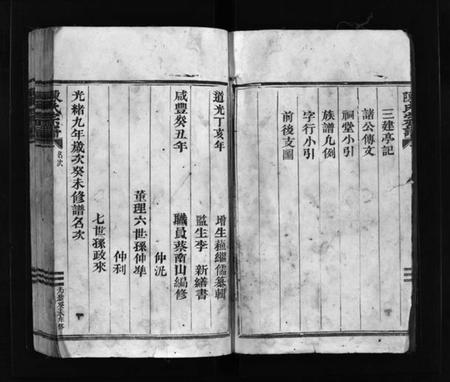 三建亭記
諸公傳文
祠堂小引
族譜凡例
字行小引
前後支圖
道光丁亥年
增生 繼儒纂輯
監生李 新繕書
咸豐癸丑年
職員蔡南山編修
仲況
董理六世孫仲
仲利
七世孫政來
光緒九年歲次癸未修譜名次
名次